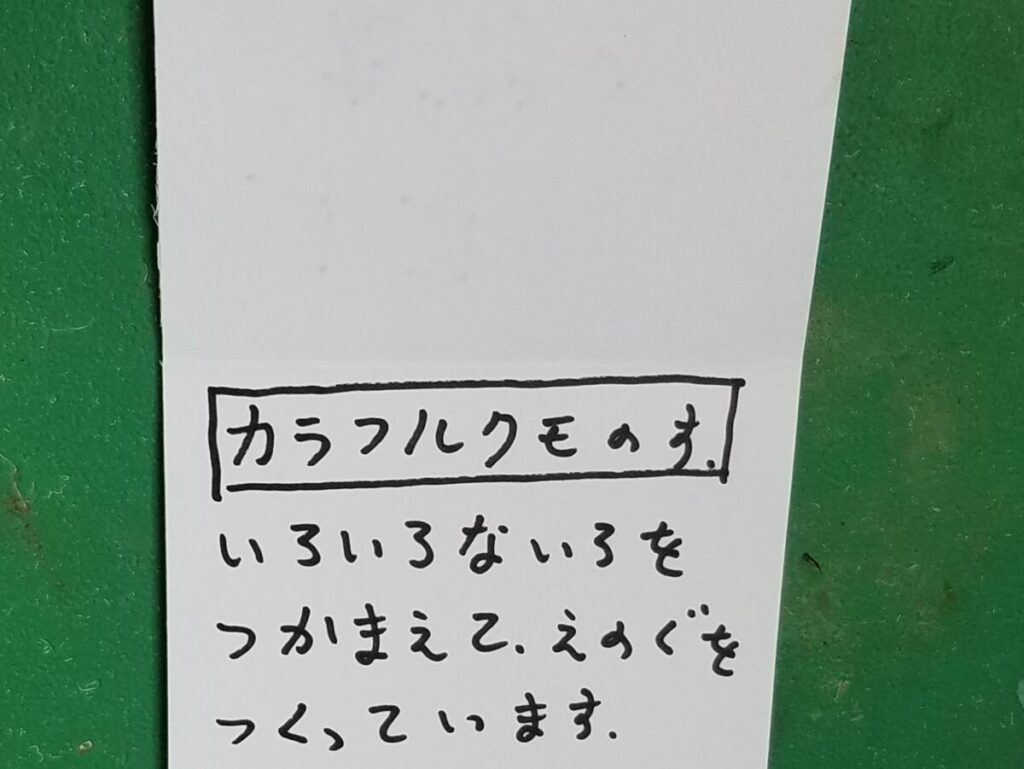 カラフルクモのす.
いろいろないろを
つかまえて.えのぐを
つくっています.